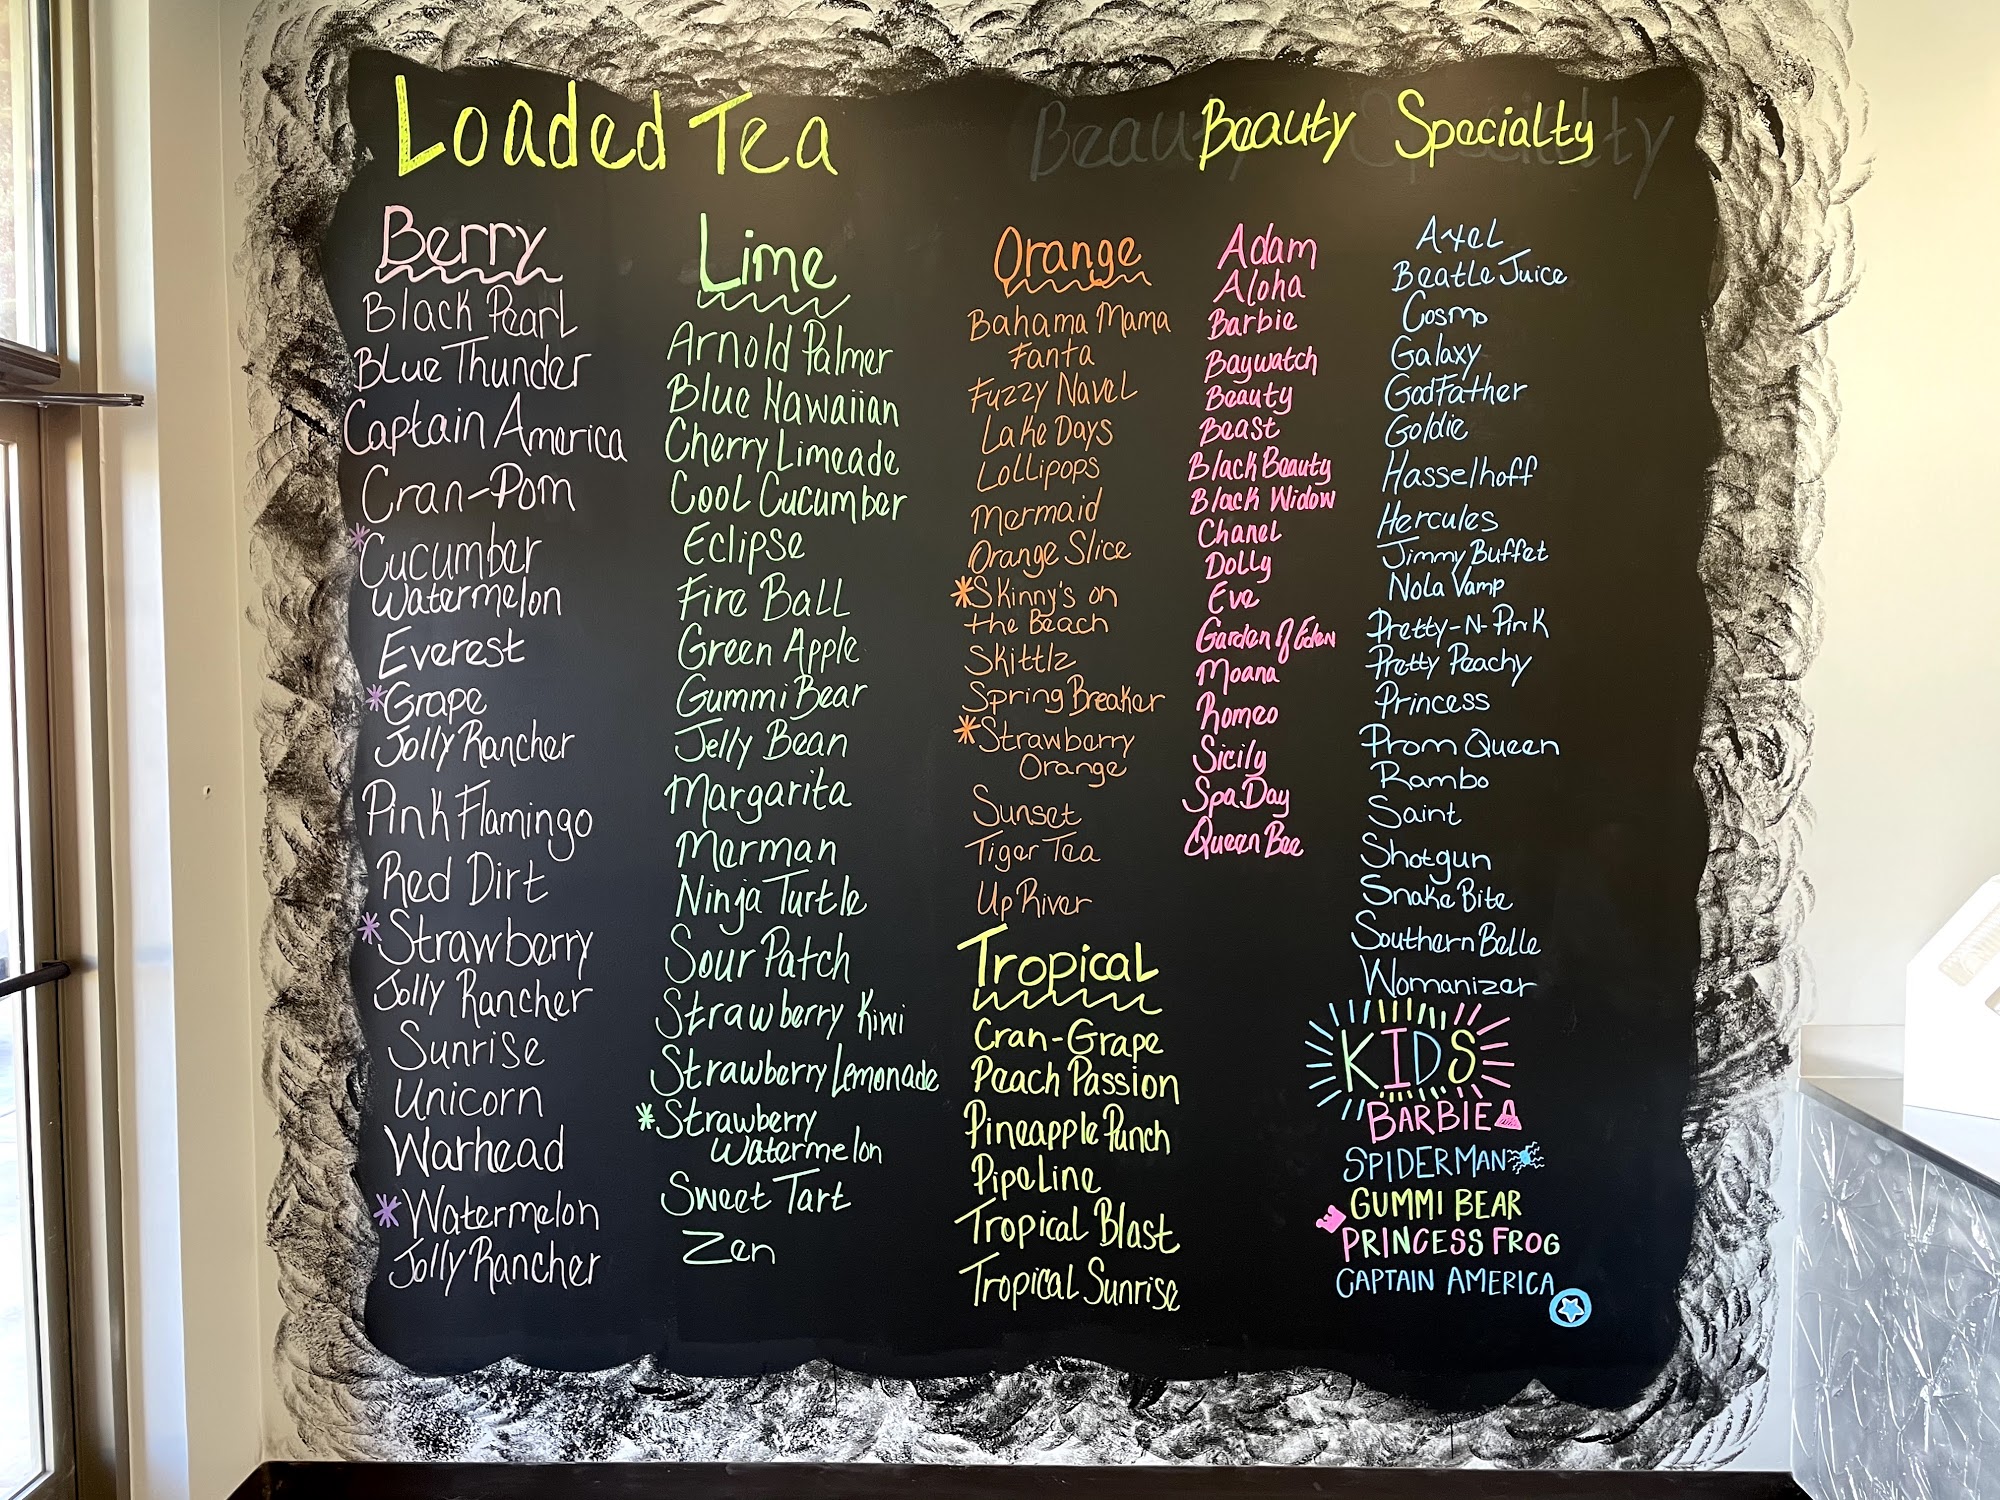 Loaded Tea
Berry
Black Pearl
Blue Thunder
Captain America
Cran-Pom
*Cucumber
Watermelon
Everest
*Grape
Jolly Rancher
Pink Flamingo
Red Dirt
*Strawberry
Jolly Rancher
Sunrise
Unicorn
Warhead
*Watermelon
Jolly Rancher
Lime
Arnold Palmer
Blue Hawaiian
Cherry Limeade
Cool Cucumber
Eclipse
Fire Ball
Green Apple
Gummi Bear
Jelly Bean
Margarita
Merman
Ninja Turtle
Sour Patch
Strawberry Kiwi
Strawberry Lemonade
*Strawberry
Watermelon
Sweet Tart
Zen
Orange
Bahama Mama
Fanta
Fuzzy Navel
Lake Days
Lollipops
Mermaid
Orange Slice
*Skinny's on
the Beach
Skittlz
Spring Breaker
*Strawberry
Orange
Sunset
Tiger Tea
Up River
Tropical
Cran-Grape
Peach Passion
Pineapple Punch
Pipe Line
Tropical Blast
Tropical Sunrise
Beauty Specialty
Beauty Specialty
Adam
Aloha
Barbie
Baywatch
Beauty
Beast
Black Beauty
Black Widow
Chanel
Dolly
Eve
Garden of Eden
Moana
Romeo
Sicily
Spa Day
Queen Bee
Axel
Beatle Juice
Cosmo
Galaxy
GodFather
Goldie
Hasselhoff
Hercules
Jimmy Buffet
Nola Vamp
Pretty-N-Pink
Pretty Peachy
Princess
Prom Queen
Rambo
Saint
Shotgun
Snake Bite
Southern Belle
Womanizer
KIDS
BARBIE
SPIDERMAN
GUMMI BEAR
PRINCESS FROG
CAPTAIN AMERICA